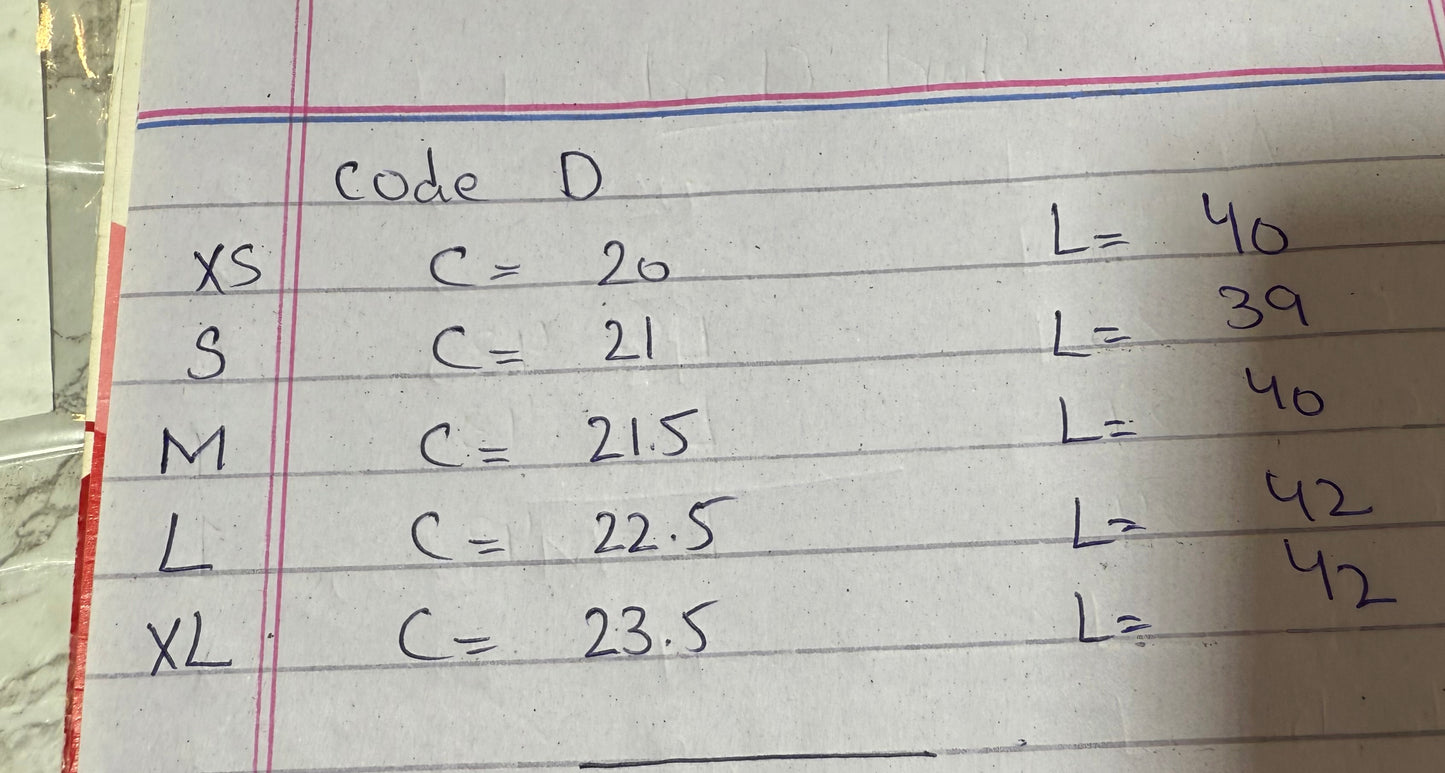 code D
XS C = 20 L = 40
S C = 21 L = 39
M C = 21.5 L = 40
L C = 22.5 L = 42
XL C = 23.5 L = 42